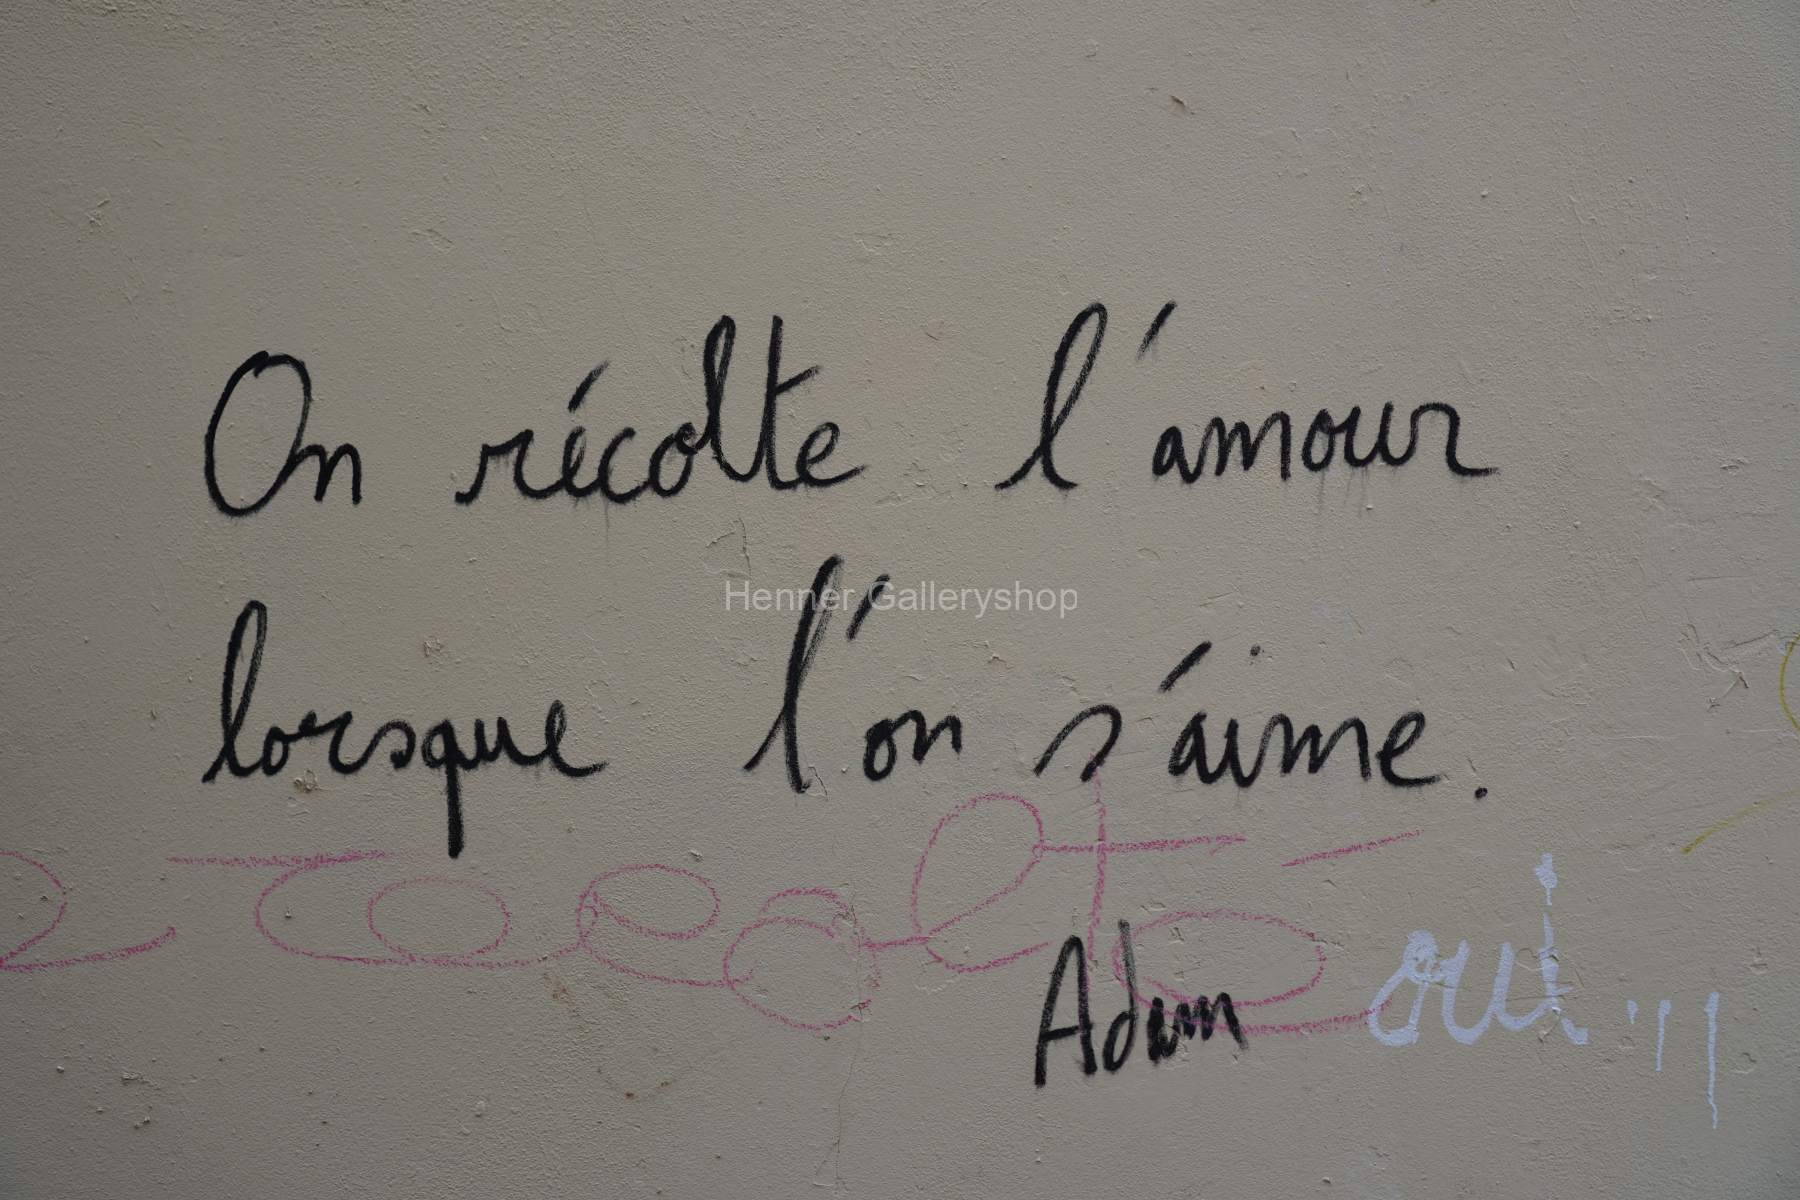 On récolte l'amour
lorsque l'on s'aime.
Henner Galleryshop
Adam
oui